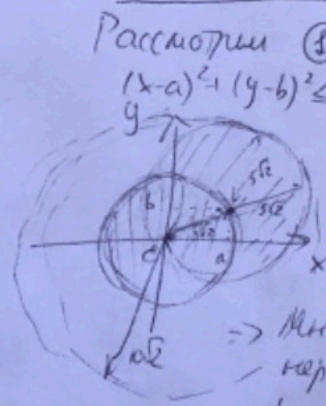 Рассмотрим ①
(x-a)²+(y-b)²≤
y
5√2
b
5√2
5√2
a
x
10√2
=> Мн
нер